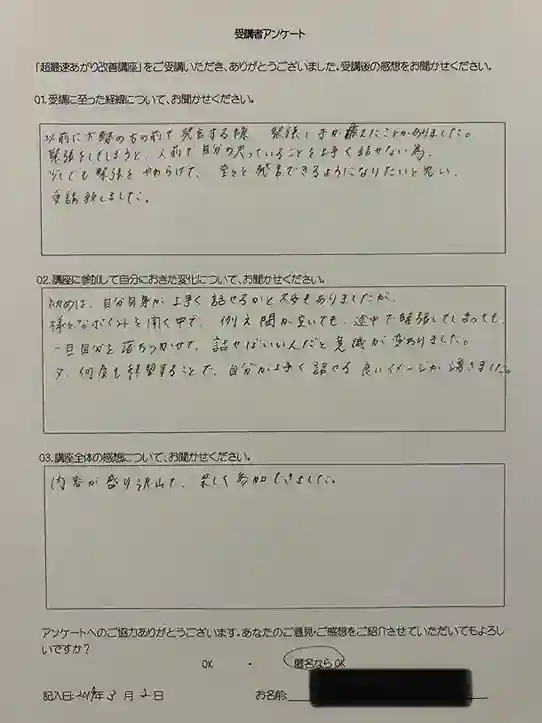 受講者アンケート
「超最速あがり改善講座」をご受講いただき、ありがとうございました。受講後の感想をお聞かせください。
01.受講に至った経緯について、お聞かせください。
以前に大勢の方の前で発言する様 緊張し手が震えたことがありました。
緊張をしてしまうと、人前で自分の思っていることを上手く話せない為、
少しでも緊張をやわらげて、堂々と発言できるようになりたいと思い、
受講致しました。
02.講座に参加して自分におきた変化について、お聞かせください。
初めは、自分自身が上手く話せるかと不安もありましたが、
様々なポイントを聞く中で、例え間が空いても、途中で緊張してしまっても、
一旦自分を落ちつかせて、話せばいいんだと意識が変わりました。
又、何度も練習することで、自分が上手く話せる良いイメージが湧きました。
03.講座全体の感想について、お聞かせください。
内容が盛り沢山で、楽しく参加できました。
アンケートへのご協力ありがとうございます。あなたのご意見・ご感想をご紹介させていただいてもよろし
いですか?
OK ・ 匿名ならOK
記入日:2019年3月2日 お名前: